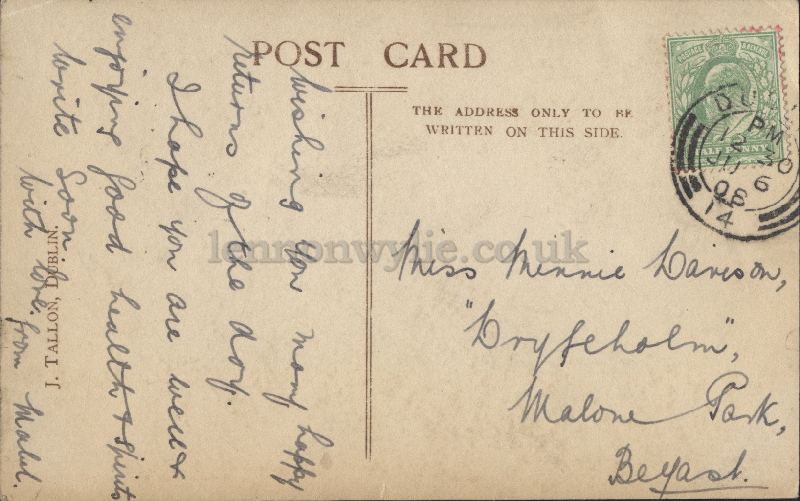 POST CARD
THE ADDRESS ONLY TO BE
WRITTEN ON THIS SIDE.
Wishing you many happy
returns of the day.
I hope you are well &
enjoying good health & spirits
Write soon.
With love from Mabel.
J. TALLON, DUBLIN.
Miss Minnie Davison,
"Dryfeholm",
Malone Park,
Belfast.
POSTAGE & REVENUE
HALF PENNY
DU
PM
12 30
JU 6
08
14
lennonwylie.co.uk